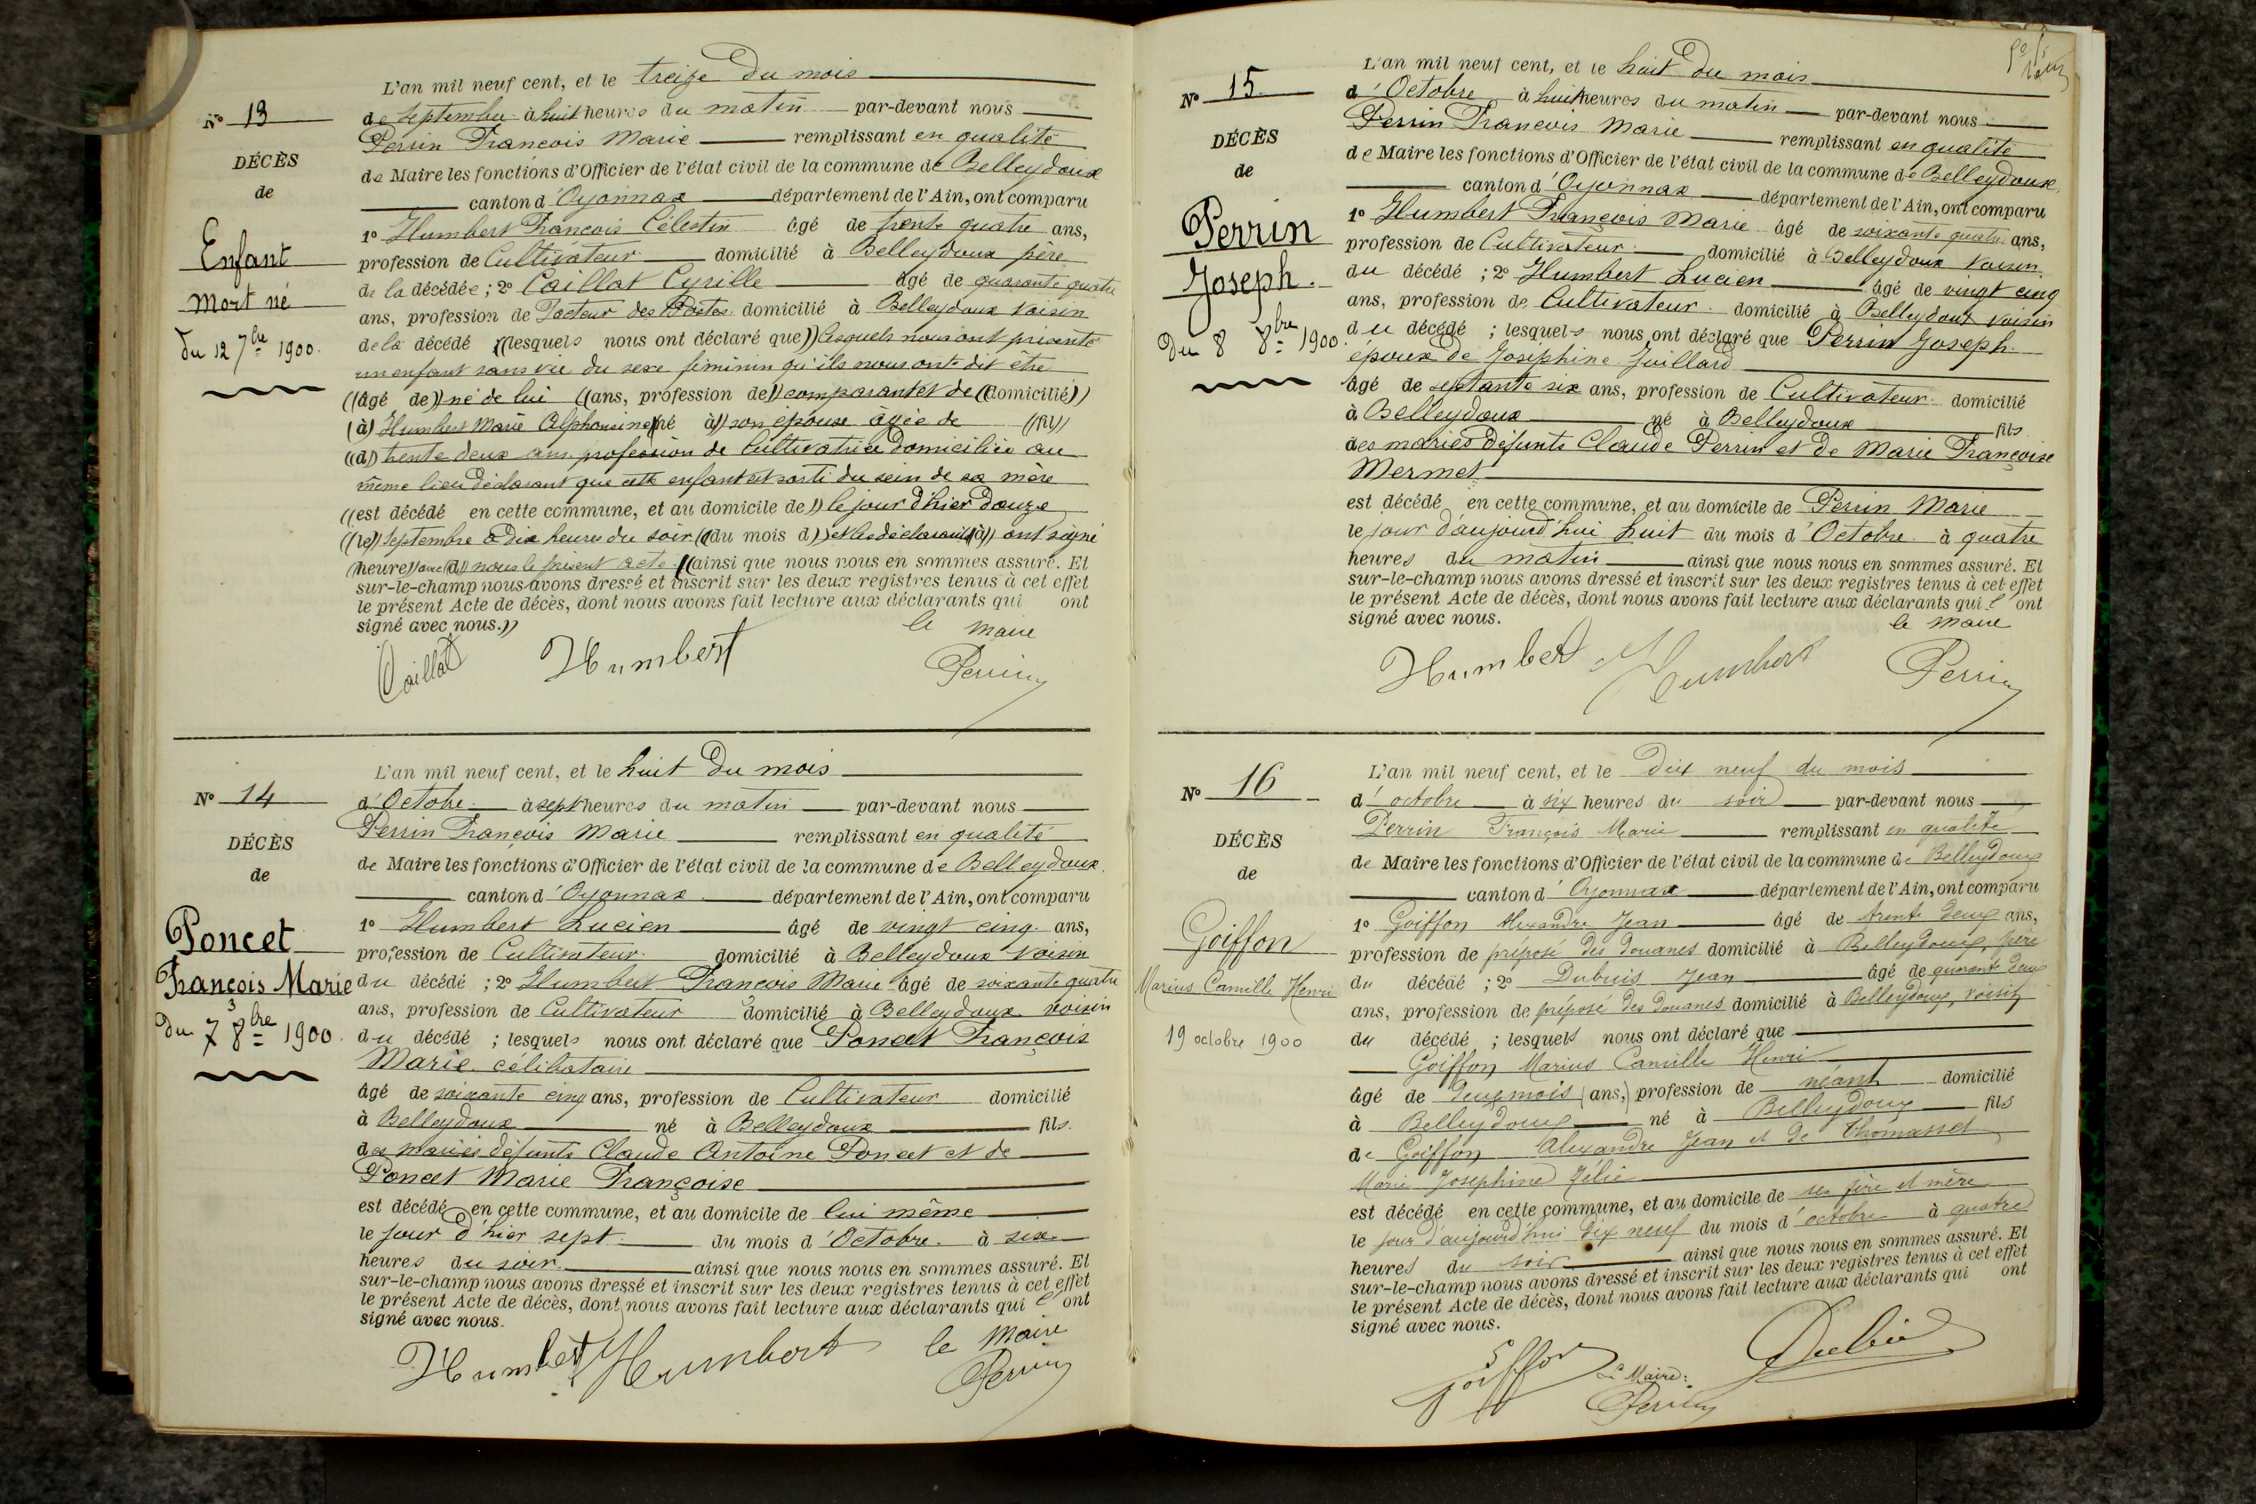 L'an mil neuf cent, et le treize du mois
N° 13
de septembre à huit heures du matin par-devant nous
Perrin François Marie remplissant en qualité
DÉCÈS
de Maire les fonctions d'Officier de l'état civil de la commune de Belleydoux
de
canton d'Oyonnax département de l'Ain, ont comparu
1° Humbert François Célestin âgé de trente quatre ans,
Enfant
profession de Cultivateur domicilié à Belleydoux père
mort né
de la décédée ; 2° Caillat Cyrille âgé de quarante quatre
ans, profession de Facteur des Postes domicilié à Belleydoux voisin
du 12 7bre 1900.
de la décédé ((lesquels nous ont déclaré que)) lesquels nous ont présenté
un enfant sans vie du sexe féminin qu'ils nous ont dit être
((âgé de)) né de lui ((ans, profession de)) comparant et de ((domicilié))
(à) Humbert Marie Alphonsine ((né à)) son épouse âgée de ((fil))
((d)) trente deux ans profession de Cultivatrice domiciliée au
même lieu déclarant que cette enfant est sorti du sein de sa mère
((est décédé en cette commune, et au domicile de)) le jour d'hier douze
((le)) septembre à dix heures du soir ((du mois d)) et les déclarants ((à)) ont signé
(heure)) avec ((d)) nous le présent acte. ((ainsi que nous nous en sommes assuré. Et
sur-le-champ nous avons dressé et inscrit sur les deux registres tenus à cet effet
le présent Acte de décès, dont nous avons fait lecture aux déclarants qui ont
signé avec nous.))
le maire
Caillat Humbert Perrin
L'an mil neuf cent, et le huit du mois
N° 14
d'Octobre à sept heures du matin par-devant nous
Perrin François Marie remplissant en qualité
DÉCÈS
de Maire les fonctions d'Officier de l'état civil de la commune de Belleydoux
de
canton d'Oyonnax département de l'Ain, ont comparu
1° Humbert Lucien âgé de vingt cinq ans,
Poncet
profession de Cultivateur domicilié à Belleydoux voisin
François Marie
du décédé ; 2° Humbert François Marie âgé de soixante quatre
ans, profession de Cultivateur domicilié à Belleydoux voisin
du 7 8bre 1900.
du décédé ; lesquels nous ont déclaré que Poncet François
Marie célibataire
âgé de soixante cinq ans, profession de Cultivateur domicilié
à Belleydoux né à Belleydoux fils
des mariés défunts Claude Antoine Poncet et de
Poncet Marie Françoise
est décédé en cette commune, et au domicile de lui même
le jour d'hier sept du mois d'Octobre à six
heures du soir ainsi que nous nous en sommes assuré. Et
sur-le-champ nous avons dressé et inscrit sur les deux registres tenus à cet effet
le présent Acte de décès, dont nous avons fait lecture aux déclarants qui l'ont
signé avec nous.
le Maire
Humbert Humbert Perrin
L'an mil neuf cent, et le huit du mois
N° 15
d'Octobre à huit heures du matin par-devant nous
Perrin François Marie remplissant en qualité
DÉCÈS
de Maire les fonctions d'Officier de l'état civil de la commune de Belleydoux
de
canton d'Oyonnax département de l'Ain, ont comparu
1° Humbert François Marie âgé de soixante quatre ans,
Perrin
profession de Cultivateur domicilié à Belleydoux voisin
Joseph.
du décédé ; 2° Humbert Lucien âgé de vingt cinq
ans, profession de Cultivateur domicilié à Belleydoux voisin
Du 8 8bre 1900.
du décédé ; lesquels nous ont déclaré que Perrin Joseph
époux de Joséphine Juillard
âgé de septante six ans, profession de Cultivateur domicilié
à Belleydoux né à Belleydoux fils
des mariés défunts Claude Perrin et de Marie Françoise
Mermet
est décédé en cette commune, et au domicile de Perrin Marie
le jour d'aujourd'hui huit du mois d'Octobre à quatre
heures du matin ainsi que nous nous en sommes assuré. Et
sur-le-champ nous avons dressé et inscrit sur les deux registres tenus à cet effet
le présent Acte de décès, dont nous avons fait lecture aux déclarants qui l'ont
signé avec nous.
le maire
Humbert Humbert Perrin
L'an mil neuf cent, et le dix neuf du mois
N° 16
d'octobre à six heures du soir par-devant nous
Perrin François Marie remplissant en qualité
DÉCÈS
de Maire les fonctions d'Officier de l'état civil de la commune de Belleydoux
de
canton d'Oyonnax département de l'Ain, ont comparu
1° Goiffon Alexandre Jean âgé de trente deux ans,
Goiffon
profession de préposé des douanes domicilié à Belleydoux, père
Marius Camille Henri
du décédé ; 2° Dubuis Jean âgé de quarante deux
ans, profession de préposé des douanes domicilié à Belleydoux, voisin
19 octobre 1900
du décédé ; lesquels nous ont déclaré que
Goiffon Marius Camille Henri
âgé de deux mois (ans,) profession de néant domicilié
à Belleydoux né à Belleydoux fils
de Goiffon Alexandre Jean et de Thomasset
Marie Josephine Zélie
est décédé en cette commune, et au domicile de ses père et mère
le jour d'aujourd'hui dix neuf du mois d'octobre à quatre
heures du soir ainsi que nous nous en sommes assuré. Et
sur-le-champ nous avons dressé et inscrit sur les deux registres tenus à cet effet
le présent Acte de décès, dont nous avons fait lecture aux déclarants qui ont
signé avec nous.
Goiffon Le Maire: Perrin